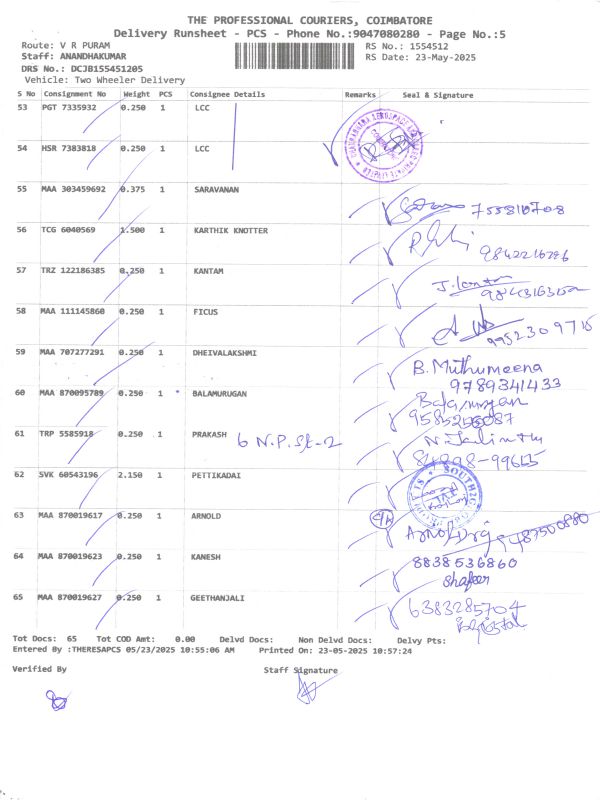 THE PROFESSIONAL COURIERS, COIMBATORE
Delivery Runsheet - PCS - Phone No.:9047080280 - Page No.:5
Route: V R PURAM RS No.: 1554512
Staff: ANANDHAKUMAR RS Date: 23-May-2025
DRS No.: DCJB155451205
Vehicle: Two Wheeler Delivery
S No Consignment No Weight PCS Consignee Details Remarks Seal & Signature
53 PGT 7335932 0.250 1 LCC
54 HSR 7383818 0.250 1 LCC
55 MAA 303459692 0.375 1 SARAVANAN
7558110708
56 TCG 6040569 1.500 1 KARTHIK KNOTTER
9842216796
57 TRZ 122186385 0.250 1 KANTAM
58 MAA 111145860 0.250 1 FICUS
9952309715
59 MAA 707277291 0.250 1 DHEIVALAKSHMI B. Muthumeena
9789341433
60 MAA 870095789 0.250 1 BALAMURUGAN Balamurugan
61 TRP 5585918 0.250 1 PRAKASH 6 N.P. St-2
62 SVK 60543196 2.150 1 PETTIKADAI
63 MAA 870019617 0.250 1 ARNOLD Arnold
64 MAA 870019623 0.250 1 KANESH 8838536860
65 MAA 870019627 0.250 1 GEETHANJALI 6383285704
Tot Docs: 65 Tot COD Amt: 0.00 Delvd Docs: Non Delvd Docs: Delvy Pts:
Entered By :THERESAPCS 05/23/2025 10:55:06 AM Printed On: 23-05-2025 10:57:24
Verified By Staff Signature